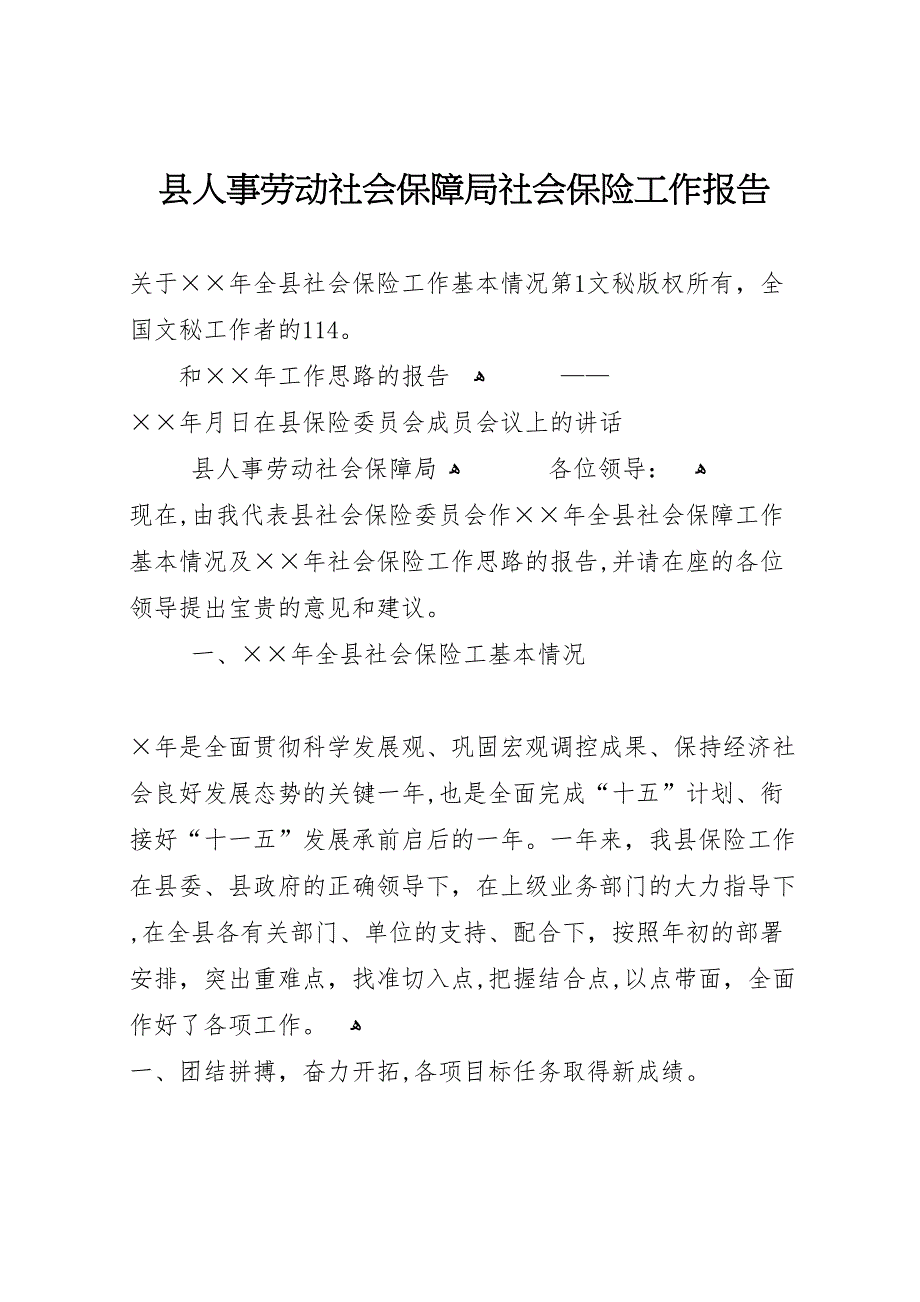 县人事劳动社会保障局社会保险工作报告
关于××年全县社会保险工作基本情况第1文秘版权所有，全
国文秘工作者的114。
和××年工作思路的报告 ﻫ ——
××年月日在县保险委员会成员会议上的讲话
县人事劳动社会保障局 ﻫ 各位领导： ﻫ
现在,由我代表县社会保险委员会作××年全县社会保障工作
基本情况及××年社会保险工作思路的报告,并请在座的各位
领导提出宝贵的意见和建议。
一、××年全县社会保险工基本情况
×年是全面贯彻科学发展观、巩固宏观调控成果、保持经济社
会良好发展态势的关键一年,也是全面完成“十五”计划、衔
接好“十一五”发展承前启后的一年。一年来，我县保险工作
在县委、县政府的正确领导下，在上级业务部门的大力指导下
,在全县各有关部门、单位的支持、配合下，按照年初的部署
安排，突出重难点，找准切入点,把握结合点,以点带面，全面
作好了各项工作。 ﻫ
一、团结拼搏，奋力开拓,各项目标任务取得新成绩。